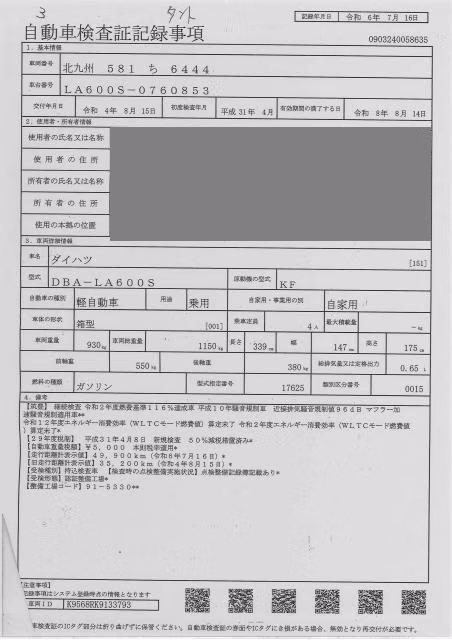 3 タント
自動車検査証記録事項
記録年月日 令和 6年 7月 16日
0903240058635
1．基本情報
車両番号 北九州 581 ち 6444
車台番号 LA600S-0760853
交付年月日 令和 4年 8月 15日 初度検査年月 平成 31年 4月 有効期間の満了する日 令和 8年 8月 14日
2．使用者・所有者情報
使用者の氏名又は名称
使用者の住所
所有者の氏名又は名称
所有者の住所
使用の本拠の位置
3．車両詳細情報
車名 ダイハツ [151]
型式 DBA-LA600S 原動機の型式 KF
自動車の種別 軽自動車 用途 乗用 自家用・事業用の別 自家用
車体の形状 箱型 [001] 乗車定員 4人 最大積載量 -kg
車両重量 930kg 車両総重量 1150kg 長さ 339cm 幅 147cm 高さ 175cm
前軸重 550kg 後軸重 380kg 総排気量又は定格出力 0.65 L
燃料の種類 ガソリン 型式指定番号 17625 類別区分番号 0015
4．備考
【筑豊】 継続検査 令和2年度燃費基準116%達成車 平成10年騒音規制車 近接排気騒音規制値96dB マフラー加
速騒音規制適用車**
令和12年エネルギー消費効率（WLTCモード燃費値）算定未了 令和2年度エネルギー消費効率（WLTCモード燃費値
）算定未了*
【29年度税制】 平成31年4月8日 新規検査 50%減税措置済み*
【自動車重量税額】￥5,000 本則税率適用*
【走行距離計表示値】49,900km（令和6年7月16日）*
【旧走行距離計表示値】35,200km（令和4年8月15日）*
【受検種別】持込検査車 【検査時の点検整備実施状況】点検整備記録簿記載あり*
【受検形態】認証整備工場*
【整備工場コード】91-5330**
【注意事項】
記録事項はシステム登録時点の情報となります
車両ID K9568RK9133793
車検査証のICタグ部分は折り曲げずに保管ください。自動車検査証の券面やICタグにき損がある場合、無効となり再交付が必要です。